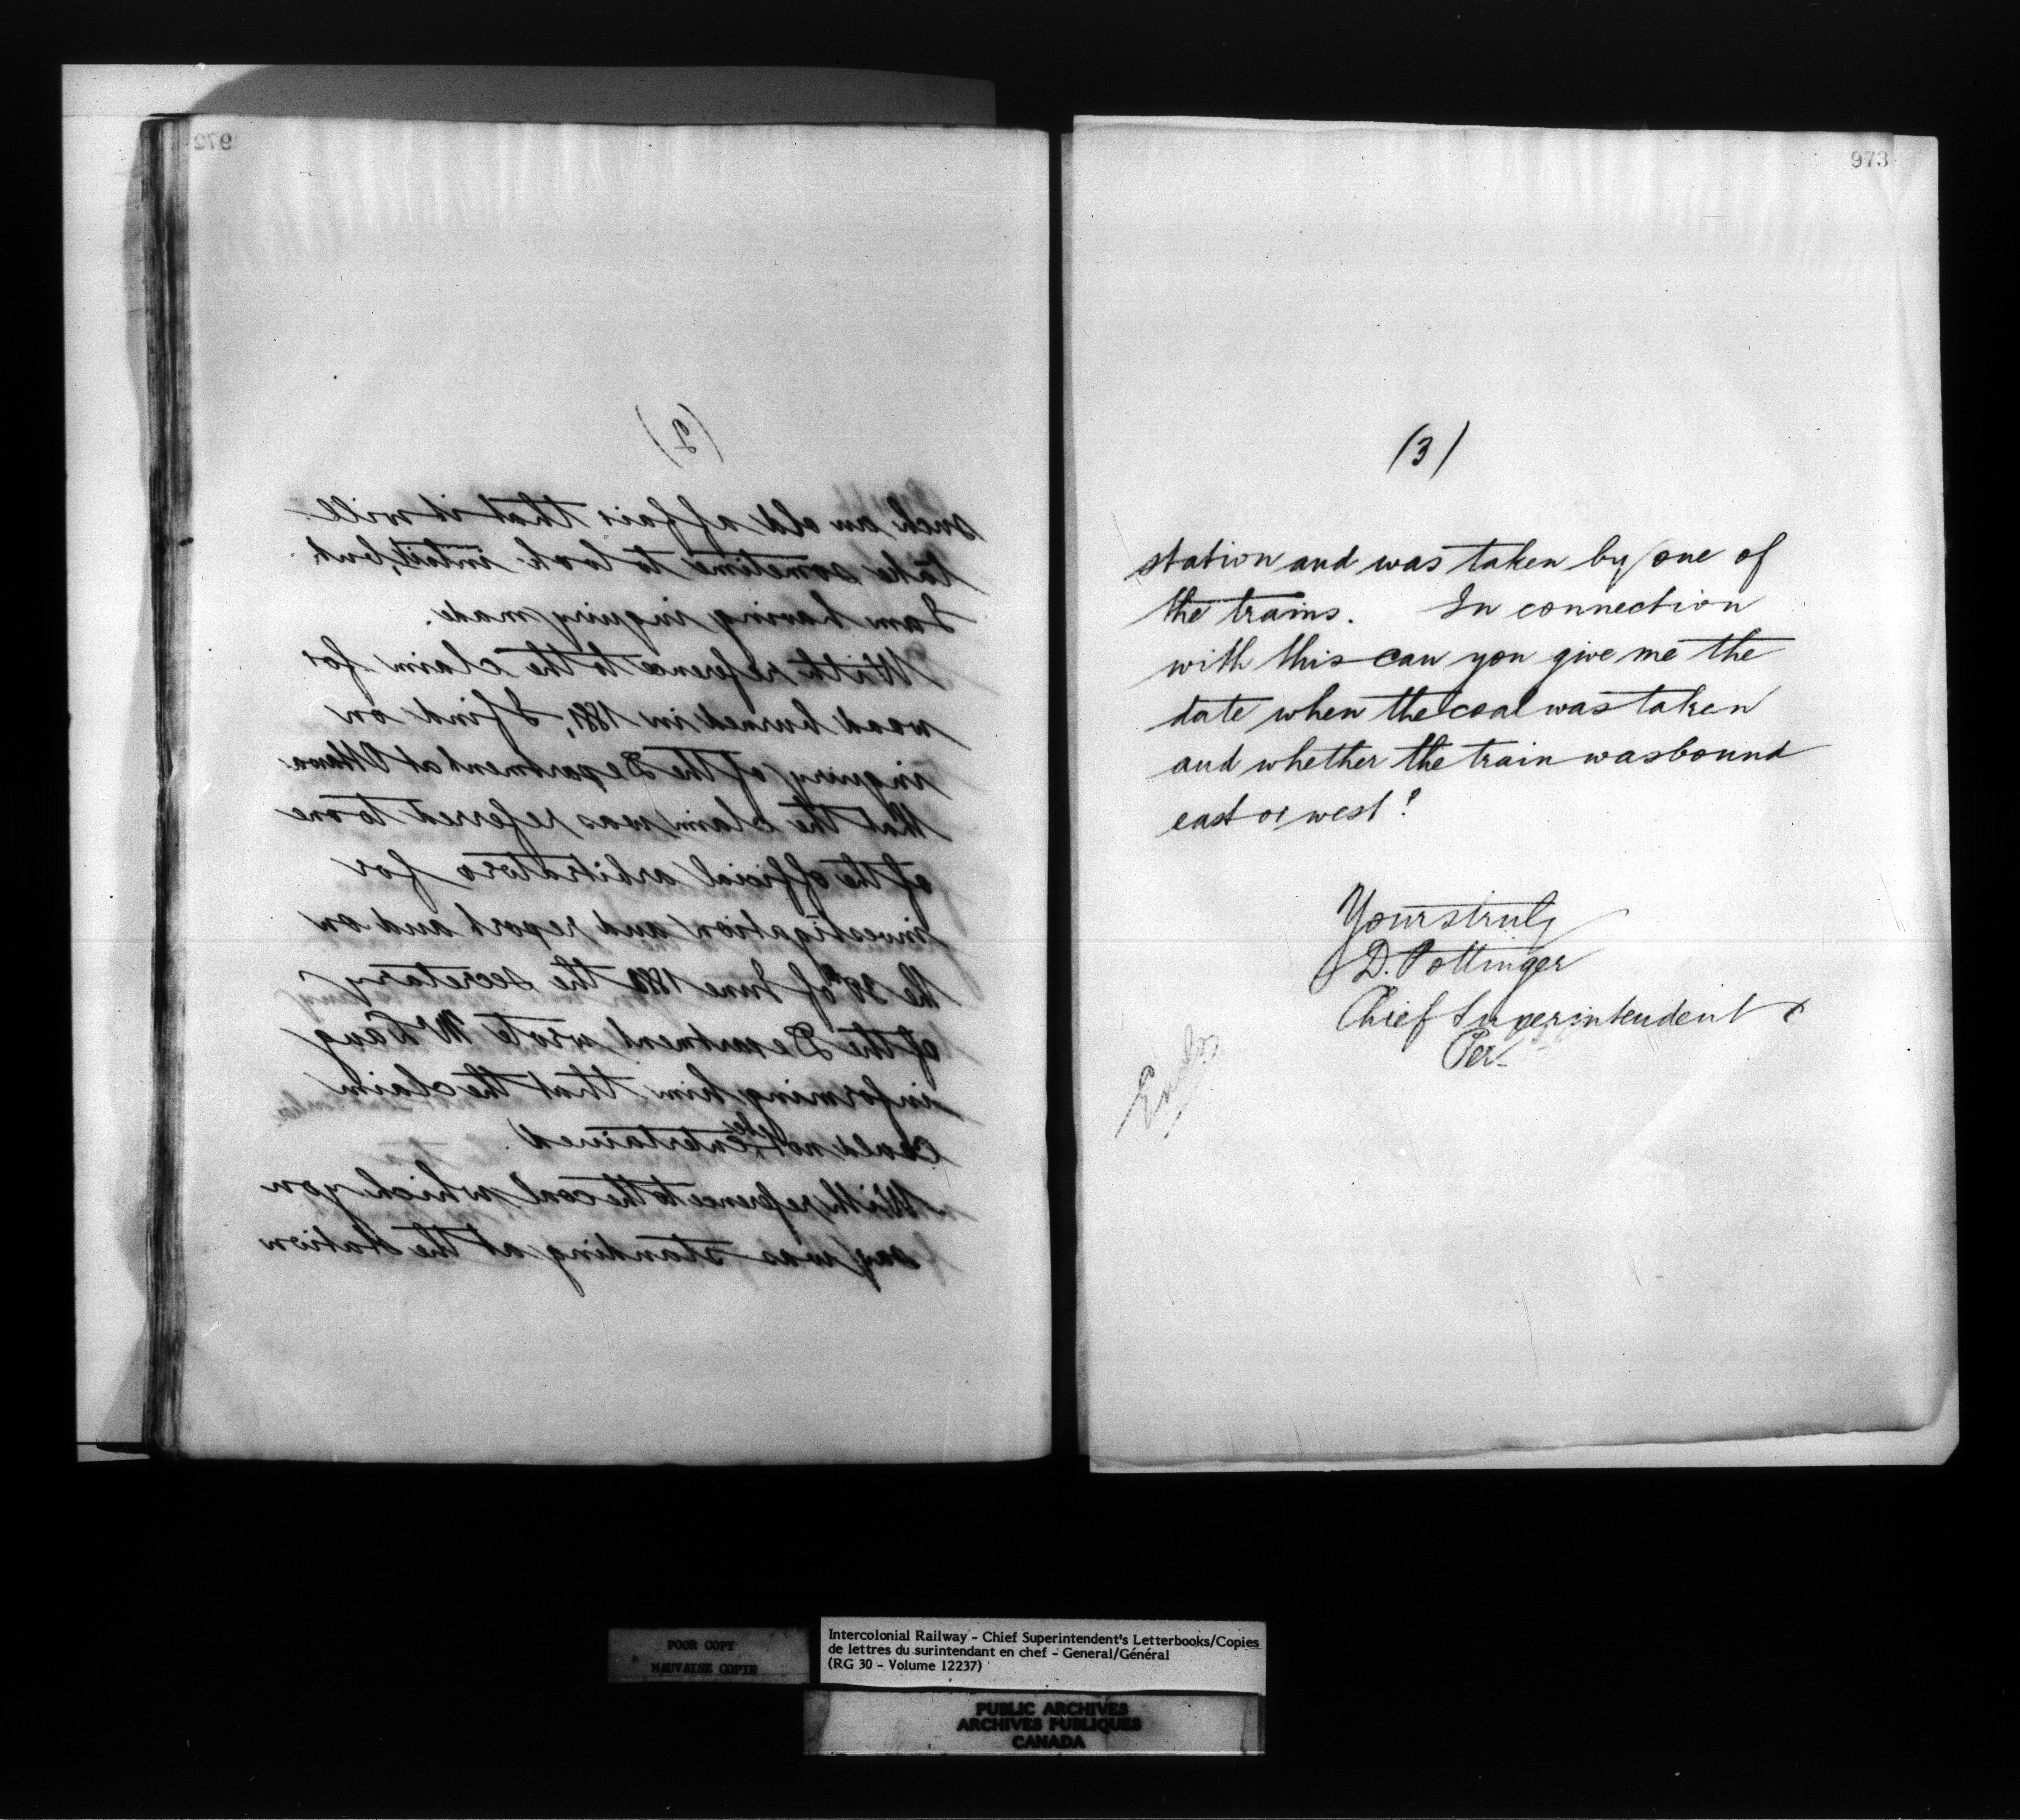 972
(2)
such an old affair that it will
take sometime to look into it, but
I am having inquiry made.
With reference to the claim for
wood burned in 1881, I find on
inquiry of the Department at Ottawa
that the claim was referred to one
of the official arbitrators for
investigation and report and on
the 30th of June 188 the secretary
of the Department wrote Mr
informing him that the claim
could not be entertained.
With reference to the coal which you
say was standing at the station
973
(3)
station and was taken by one of
the trains. In connection
with this can you give me the
date when the coal was taken
and whether the train was bound
east or west?
Yours truly
D. Pottinger
Chief Superintendent
Per
POOR COPY
MAUVAISE COPIE
Intercolonial Railway - Chief Superintendent's Letterbooks/Copies
de lettres du surintendant en chef - General/Général
(RG 30 - Volume 12237)
PUBLIC ARCHIVES
ARCHIVES PUBLIQUES
CANADA